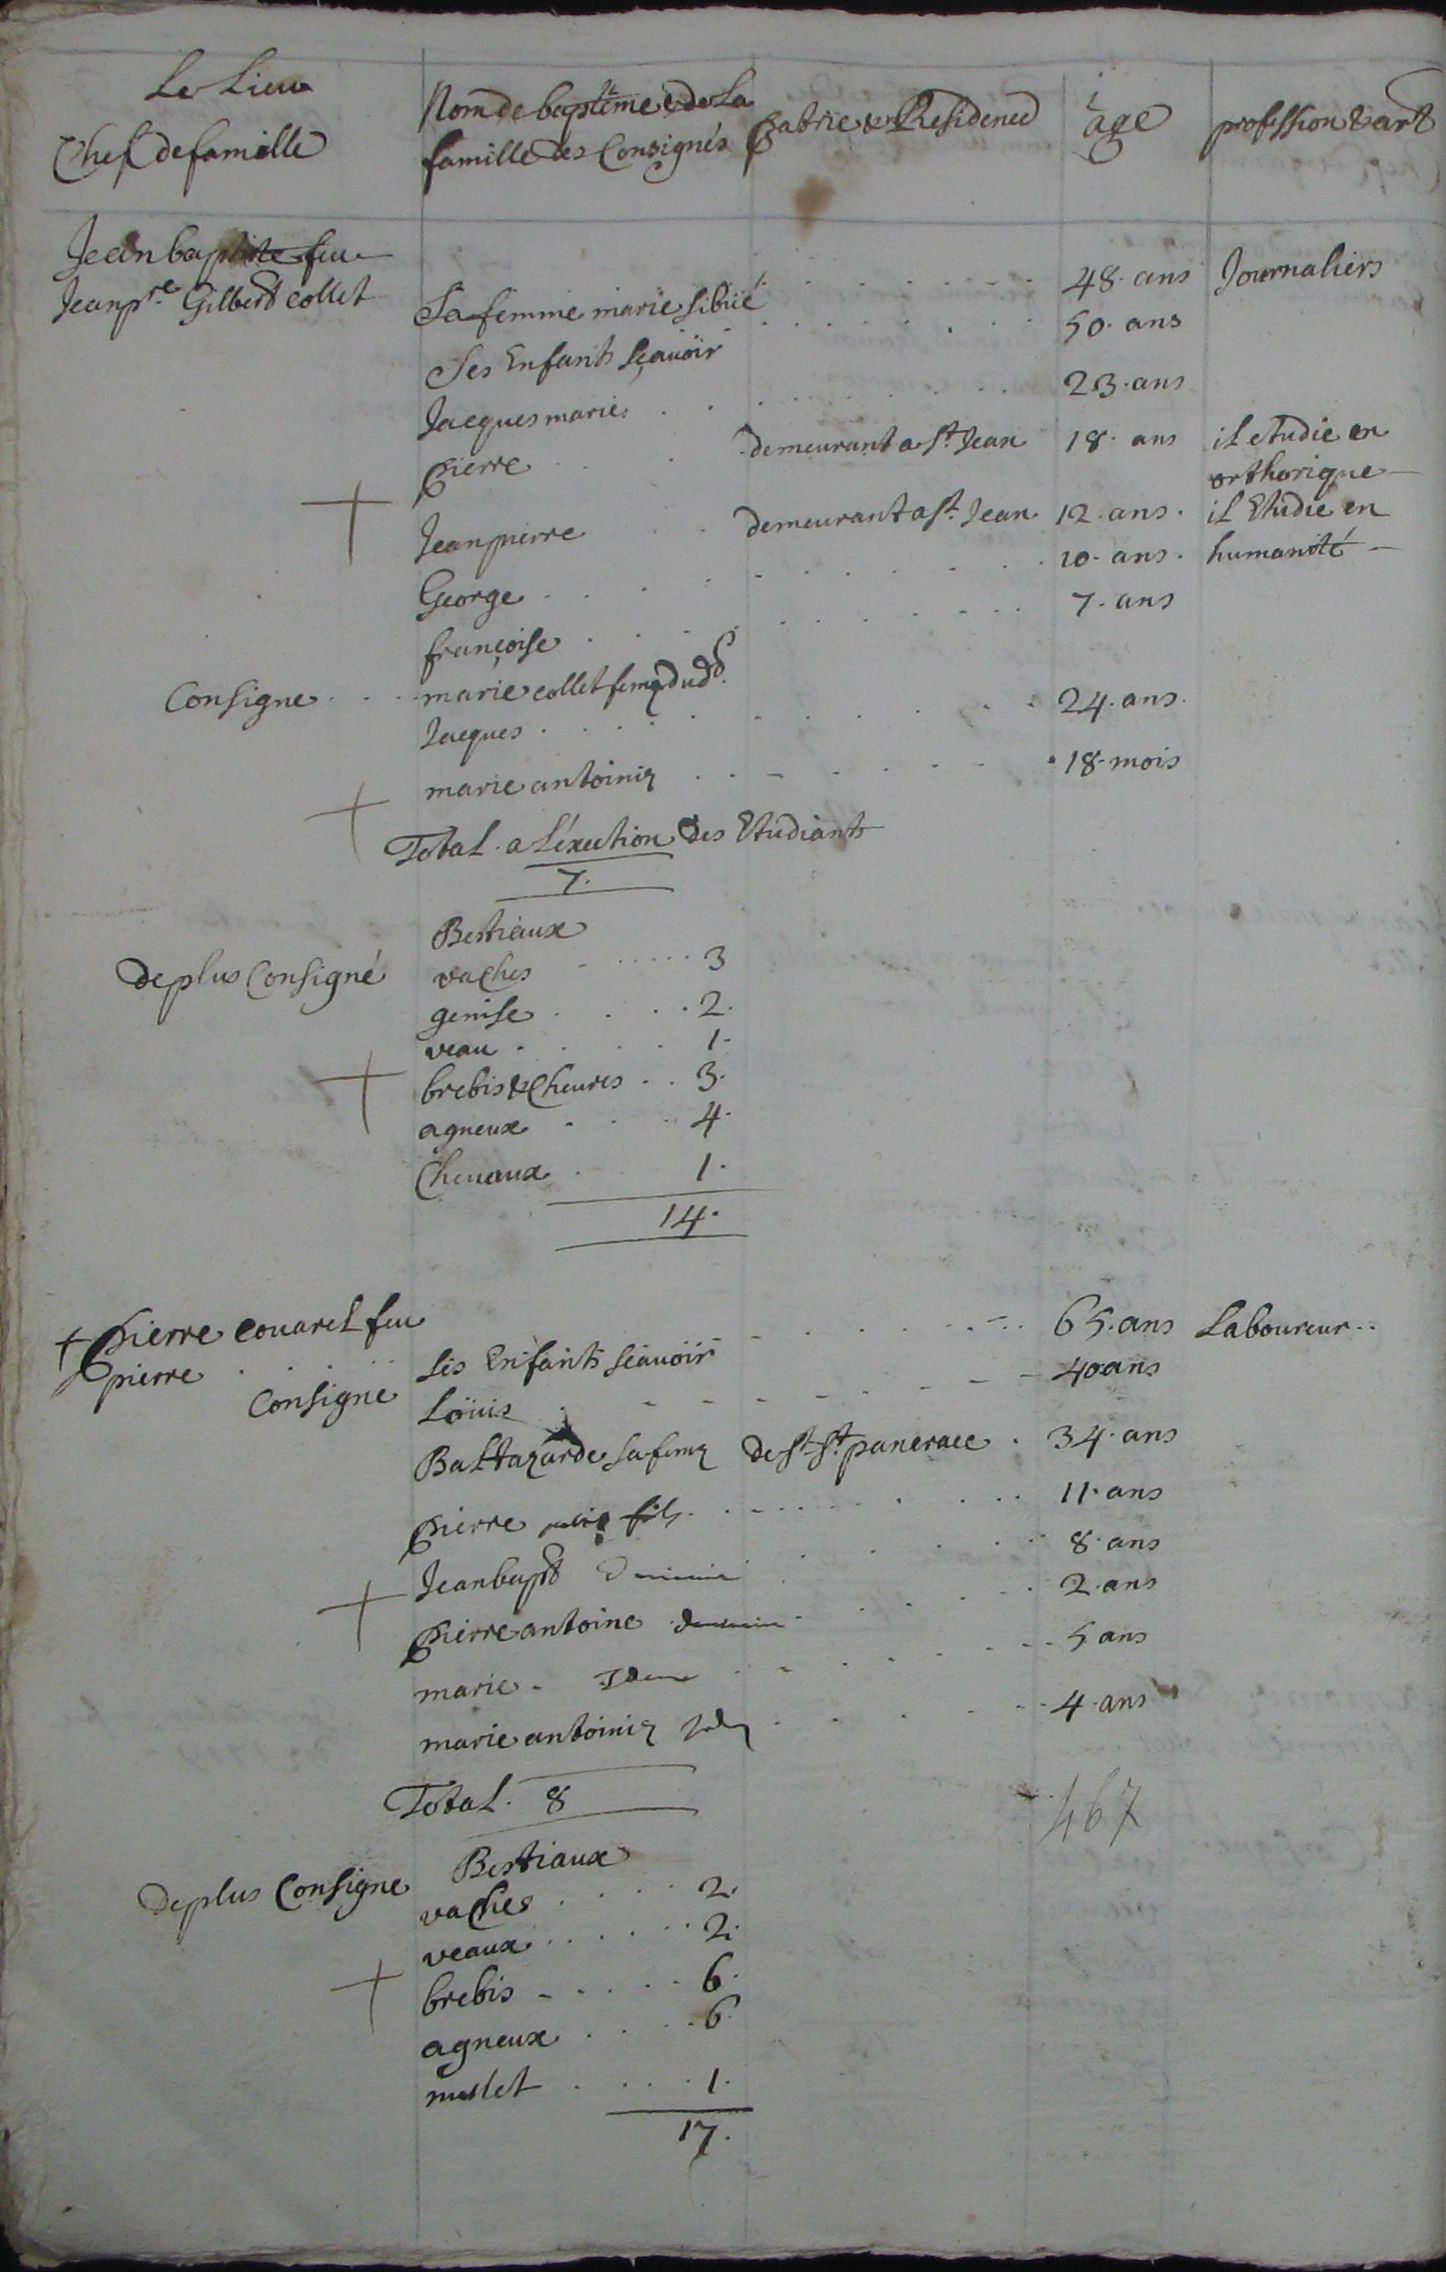 Le Lieu
Chef de famille
Nom de baptême & de La
famille des Consignés
Patrie & Residence
age
profession & art
Jean baptiste feu
Jean pre Gilbert collet
48. ans Journaliers
Sa femme marie sibüé 50. ans
Ses Enfants sçauoir
Jacques marié 23. ans
pierre demeurant a st. Jean 18. ans il etudie en
orthorique
Jean pierre demeurant a st. Jean 12. ans. il Etudie en
humanité
George 10. ans.
françoise 7. ans
Consigne marie collet feme dud.
Jacques 24. ans.
marie antoine 18. mois
Total. a L'éxeution des Etudiants
7.
Bestiaux
de plus Consigné vaches 3
genise 2.
veau 1.
brebis & Cheures 3.
agneux 4.
Cheuaux 1.
14.
+ pierre couarel feu
pierre 65. ans Laboureur
Consigne
ses Enfants sçauoir
Loüis 40 ans
Baltazarde sa feme de st. st. pancrace 34. ans
pierre fils 11. ans
Jean bapt 8. ans
pierre antoine 2. ans
marie Idem 5 ans
marie antoine Idem 4. ans
Total. 8
467
Bestiaux
de plus Consigne vaches 2.
veaux 2.
brebis 6.
agneux 6.
mulet 1.
17.